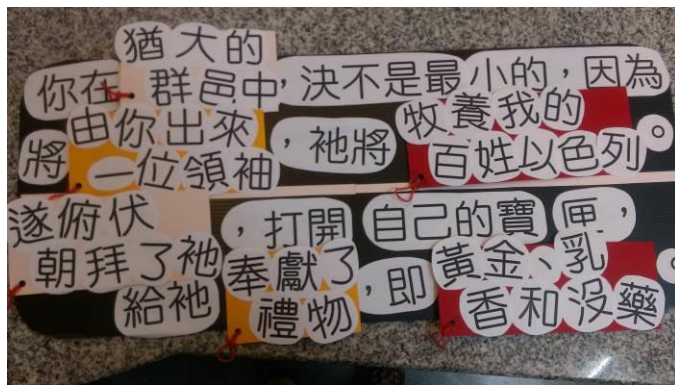 你在猶大的群邑中，決不是最小的，因為
將由你出來一位領袖，祂將牧養我的百姓以色列。
遂俯伏朝拜了祂，打開自己的寶匣，
給祂奉獻了禮物，即黃金、乳香和沒藥。